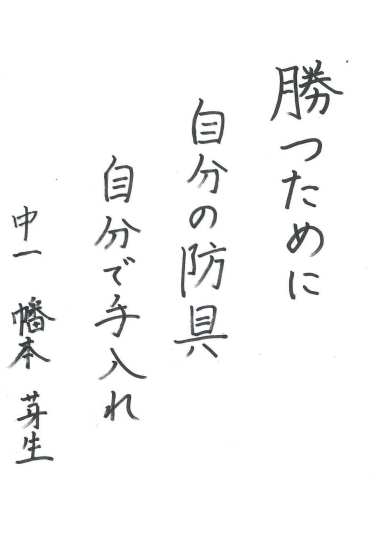 勝つために
自分の防具
自分で手入れ
中一 幡本 芽生